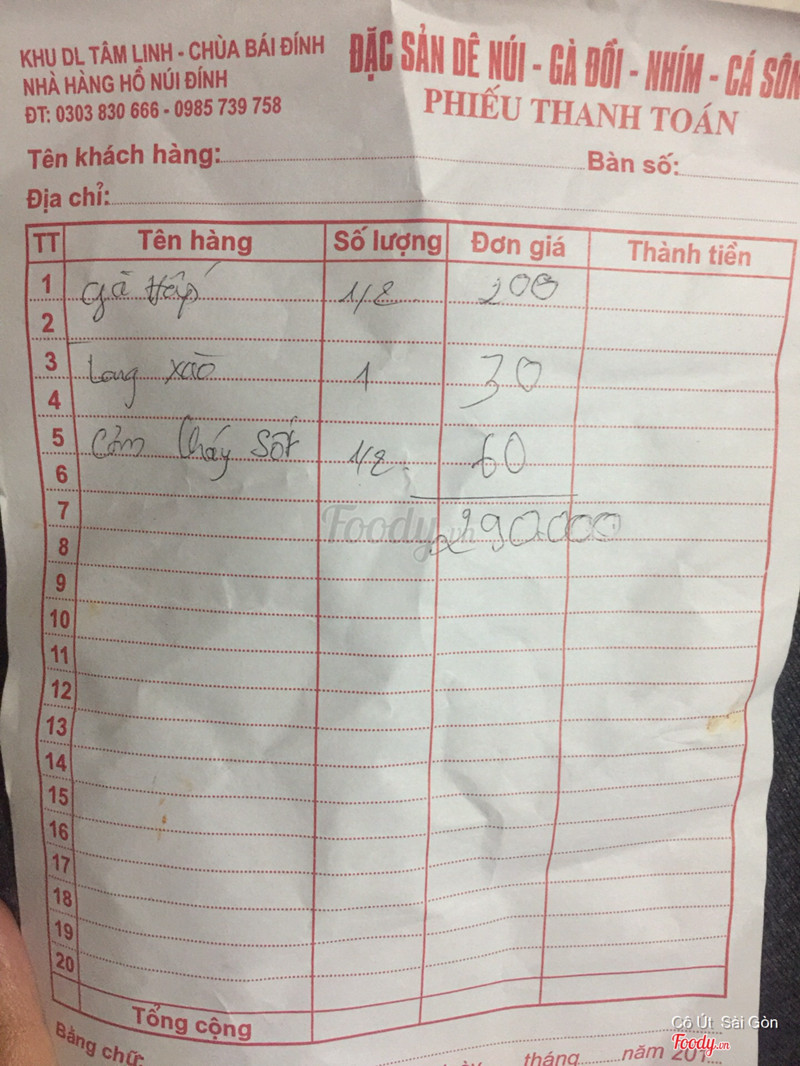 KHU DL TÂM LINH - CHÙA BÁI ĐÍNH
NHÀ HÀNG HỒ NÚI ĐÍNH
ĐT: 0303 830 666 - 0985 739 758
ĐẶC SẢN DÊ NÚI - GÀ ĐỒI - NHÍM - CÁ SÔN
PHIẾU THANH TOÁN
Tên khách hàng: Bàn số:
Địa chỉ:
TT Tên hàng Số lượng Đơn giá Thành tiền
1 Gà Hấp 1/2 200
2
3 Long xào 1 30
4
5 Cơm Cháy Sốt 1/2 60
6
7 290.000
8
9
10
11
12
13
14
15
16
17
18
19
20
Tổng cộng
Bằng chữ:
tháng năm 201
Foody.vn
Cô Út Sài Gòn
Foody.vn